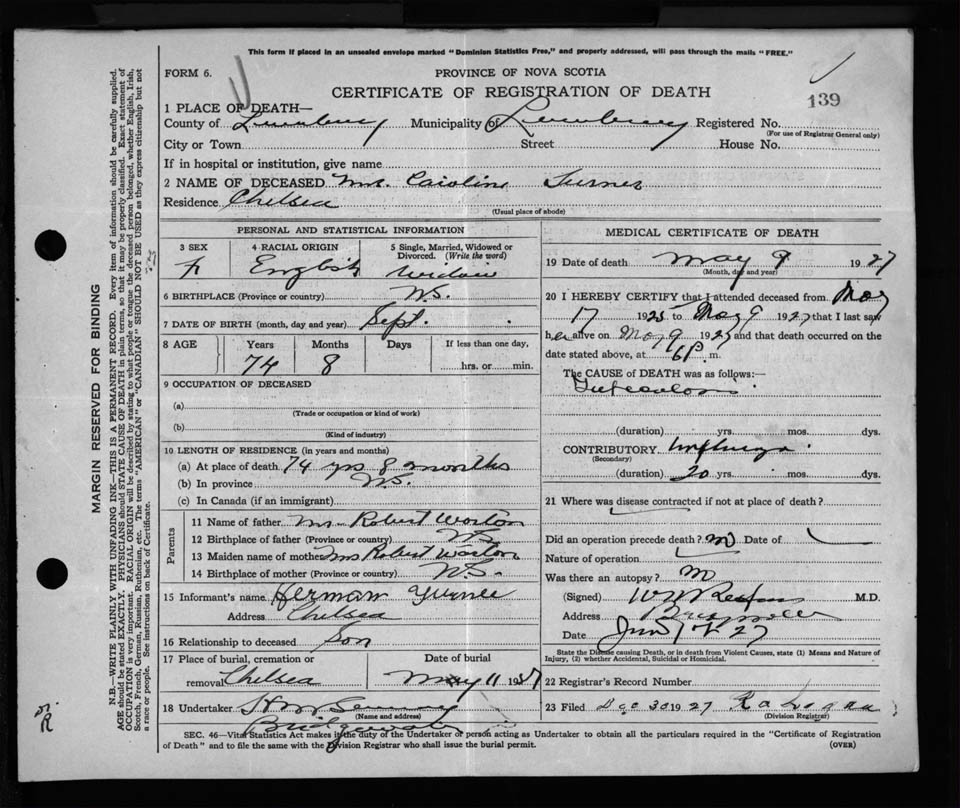 This form if placed in an unsealed envelope marked "Dominion Statistics Free," and properly addressed, will pass through the mails "FREE."
FORM 6.
PROVINCE OF NOVA SCOTIA
CERTIFICATE OF REGISTRATION OF DEATH
139
1 PLACE OF DEATH—
County of Lunenburg Municipality of Lunenburg Registered No.
(For use of Registrar General only)
City or Town Street House No.
If in hospital or institution, give name
2 NAME OF DECEASED Mrs. Caroline Turner
Residence Chelsea
(Usual place of abode)
PERSONAL AND STATISTICAL INFORMATION
3 SEX 4 RACIAL ORIGIN 5 Single, Married, Widowed or Divorced. (Write the word)
F English Widow
6 BIRTHPLACE (Province or country) N.S.
7 DATE OF BIRTH (month, day and year) Sept.
8 AGE Years Months Days If less than one day,
74 8 hrs. or min.
9 OCCUPATION OF DECEASED
(a)
(Trade or occupation or kind of work)
(b)
(Kind of industry)
10 LENGTH OF RESIDENCE (in years and months)
(a) At place of death 74 yrs 8 months
(b) In province N.S.
(c) In Canada (if an immigrant)
Parents
11 Name of father Mr Robert
12 Birthplace of father (Province or country) N.S.
13 Maiden name of mother Mrs Robert
14 Birthplace of mother (Province or country) N.S.
15 Informant's name Herman Turner
Address Chelsea
16 Relationship to deceased Son
17 Place of burial, cremation or removal Chelsea
Date of burial May 11 1927
18 Undertaker
(Name and address)
Bridgewater
MEDICAL CERTIFICATE OF DEATH
19 Date of death May 9 1927
(Month, day and year)
20 I HEREBY CERTIFY that I attended deceased from May
17 192 to May 9 1927 that I last saw
her alive on May 9 1927 and that death occurred on the
date stated above, at 6 P. m.
The CAUSE OF DEATH was as follows:—
(duration) yrs. mos. dys.
CONTRIBUTORY
(Secondary)
(duration) 20 yrs. mos. dys.
21 Where was disease contracted if not at place of death?
Did an operation precede death? no Date of
Nature of operation
Was there an autopsy? no
(Signed) M.D.
Address
Date 27
State the Disease causing Death, or in death from Violent Causes, state (1) Means and Nature of Injury, (2) whether Accidental, Suicidal or Homicidal.
22 Registrar's Record Number
23 Filed Dec 30 1927
(Division Registrar)
SEC. 46—Vital Statistics Act makes it the duty of the Undertaker or person acting as Undertaker to obtain all the particulars required in the "Certificate of Registration
of Death" and to file the same with the Division Registrar who shall issue the burial permit. (OVER)
MARGIN RESERVED FOR BINDING
N.B.—WRITE PLAINLY WITH UNFADING INK—THIS IS A PERMANENT RECORD. Every item of information should be carefully supplied.
AGE should be stated EXACTLY. PHYSICIANS should STATE CAUSE OF DEATH in plain terms, so that it may be properly classified. Exact statement of
OCCUPATION is very important. RACIAL ORIGIN will be described by stating to what people or tongue the deceased person belonged, whether English, Irish,
Scotch, French, German, Russian, Ruthenian, etc. The terms "AMERICAN" or "CANADIAN" SHOULD NOT BE USED as they express citizenship but not
a race or people. See instructions on back of Certificate.